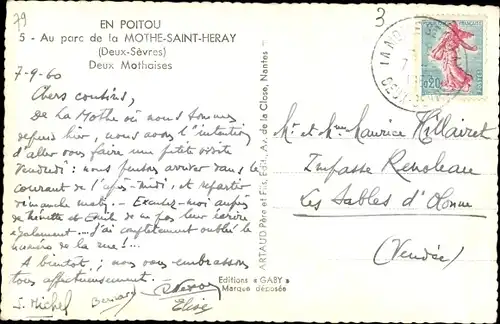 79
EN POITOU
5 - Au parc de la MOTHE-SAINT-HERAY
(Deux-Sèvres)
Deux Mothaises
7-9-60
Chers cousins,
De La Mothe où nous sommes
depuis hier, nous avons l'intention
d'aller vous faire une petite visite
Vendredi : nous pensons arriver dans le
courant de l'après-midi, et repartir
dimanche matin. - Excusez-moi auprès
de Ginette et Emile de ne pas leur écrire
également... J'ai complètement oublié le
numéro de la rue !...
A bientôt ; nous vous embrassons
tous affectueusement.
J. Michel Bernard
Elise
ARTAUD Père et Fils, Edit., Av. de la Close, Nantes
Editions « GABY »
Marque déposée
3
0,20
Mr et Mme Maurice Hillairet
Impasse Renoleau
Les Sables d'Olonne
(Vendée)